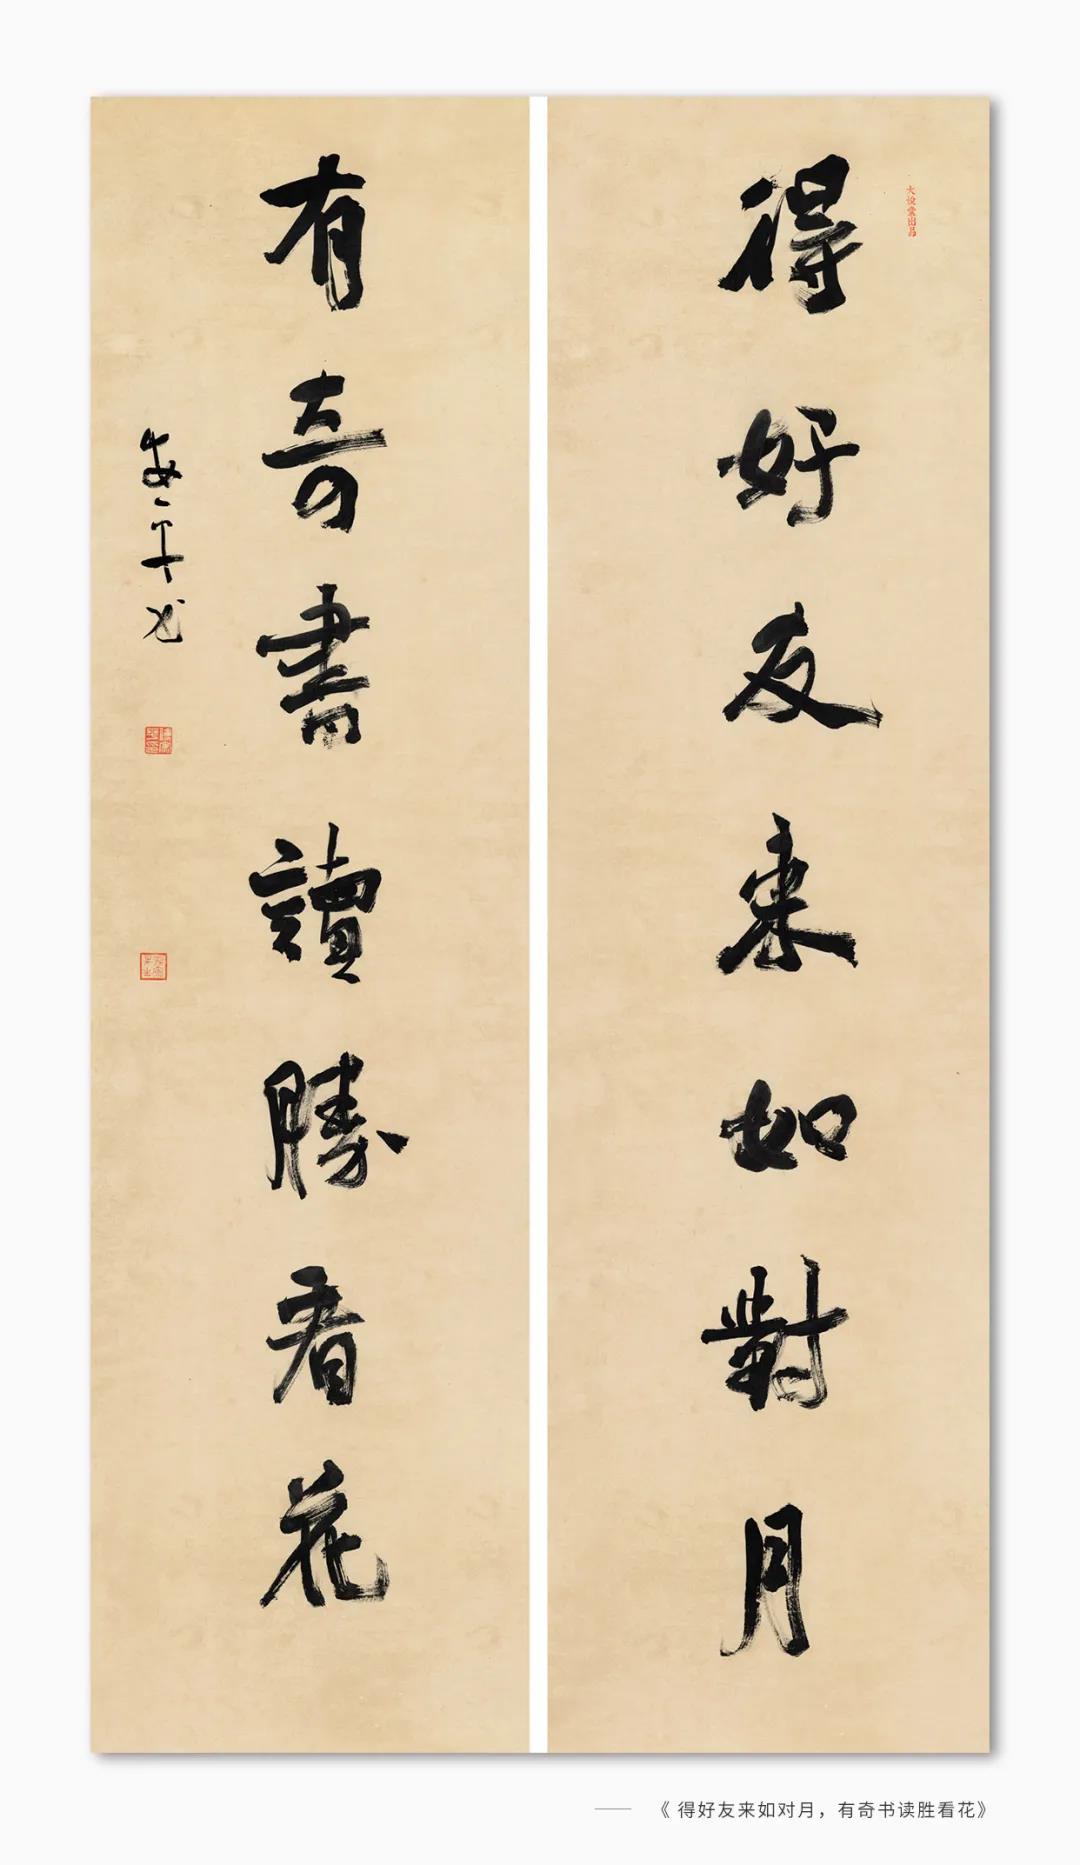 得好友来如對月
大悅堂出品
有奇書讀勝看花
《得好友来如对月，有奇书读胜看花》